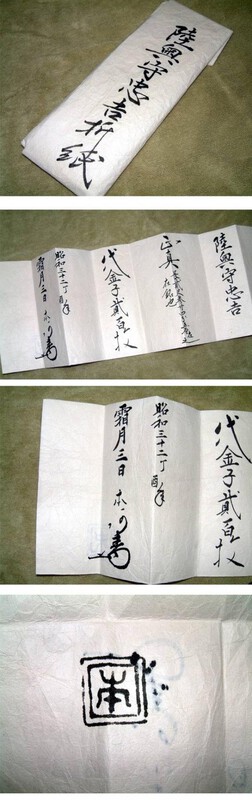 陸奥守忠吉折紙
陸奥守忠吉
正真
在銘也
代金子貳百枚
昭和三十二丁酉年
霜月三日 本阿
代金子貳百枚
昭和三十二丁酉年
霜月三日 本阿
本